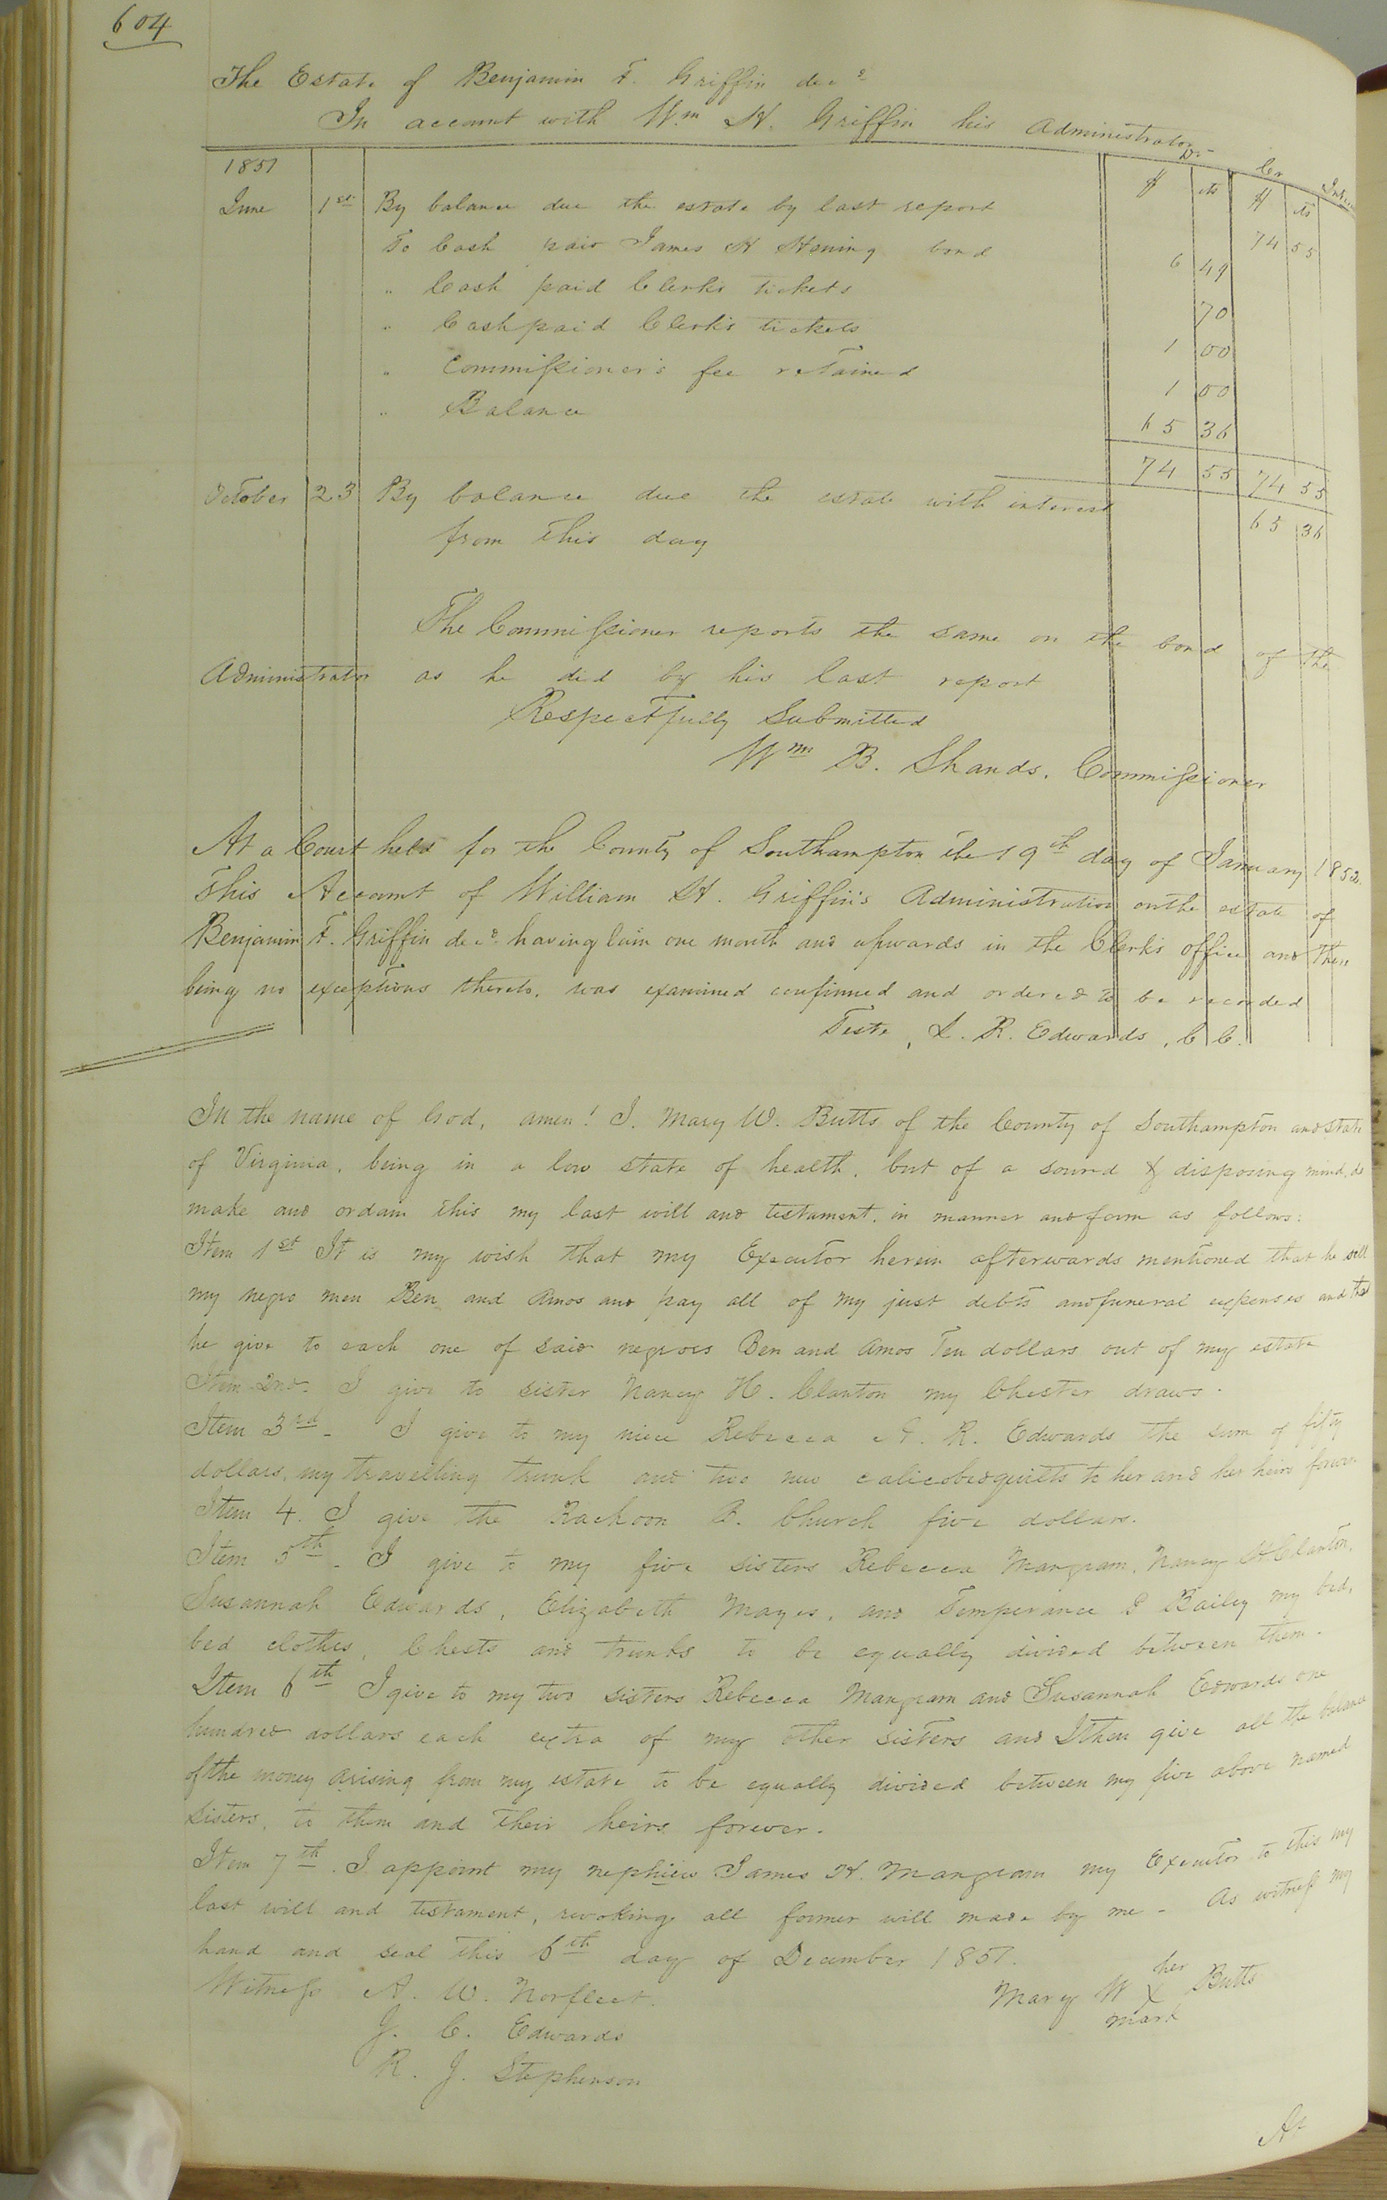 604
The Estate of Benjamin F. Griffin decd
In account with Wm H. Griffin his Administrator
Dr Cr
1851 $ cts $ cts
June 1st By balance due the estate by last report 74 55
To Cash paid James H Hening bond 6 49
" Cash paid Clerks tickets 70
" Cash paid Clerks tickets 1 00
" Commissioner's fee retained 1 00
" Balance 65 36
74 55 74 55
October 23 By balance due the estate with interest 65 36
from this day
The Commissioner reports the same on the bond of the
Administrator as he did by his last report
Respectfully Submitted
Wm B. Shands. Commissioner
At a Court held for the County of Southampton the 19th day of January 1852.
This Account of William H. Griffin's Administration on the estate of
Benjamin F. Griffin decd having lain one month and upwards in the Clerk's office and there
being no exceptions thereto, was examined confirmed and ordered to be recorded
Teste, L. R. Edwards, C C.
In the name of God, amen! I. Mary W. Butts of the County of Southampton and state
of Virginia, being in a low state of health, but of a sound & disposing mind, do
make and ordain this my last will and testament, in manner and form as follows:
Item 1st It is my wish that my Executor herein afterwards mentioned that he sell
my negro men Ben and Amos and pay all of my just debts and funeral expenses and that
he give to each one of said negroes Ben and Amos Ten dollars out of my estate
Item 2nd. I give to sister Nancy H. Clanton my Chester draws.
Item 3rd - I give to my niece Rebecca A. R. Edwards the sum of fifty
dollars, my travelling trunk and two new calico bedquilts to her and her heirs forever
Item 4. I give the Rackoon B. Church five dollars.
Item 5th - I give to my five sisters Rebecca Mangram, Nancy H Clanton,
Susannah Edwards, Elizabeth Mayes, and Temperance Bailey my bed,
bed clothes, Chests and trunks to be equally divided between them.
Item 6th I give to my two sisters Rebecca Mangram and Susannah Edwards one
hundred dollars each extra of my other sisters and I then give all the balance
of the money arising from my estate to be equally divided between my five above named
sisters, to them and their heirs forever.
Item 7th. I appoint my nephiew James H. Mangram my Executor to this my
last will and testament, revoking all former will made by me - As witness my
hand and seal this 6th day of December 1851.
Witness A. W. Norfleet. her
J. C. Edwards Mary W X Butts
R. J. Stephenson mark
At